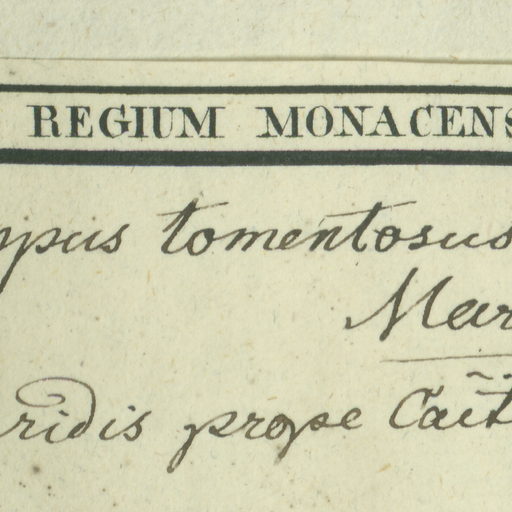 REGIUM MONACENS
ypus tomentosus
Mar
ridis prope Caët